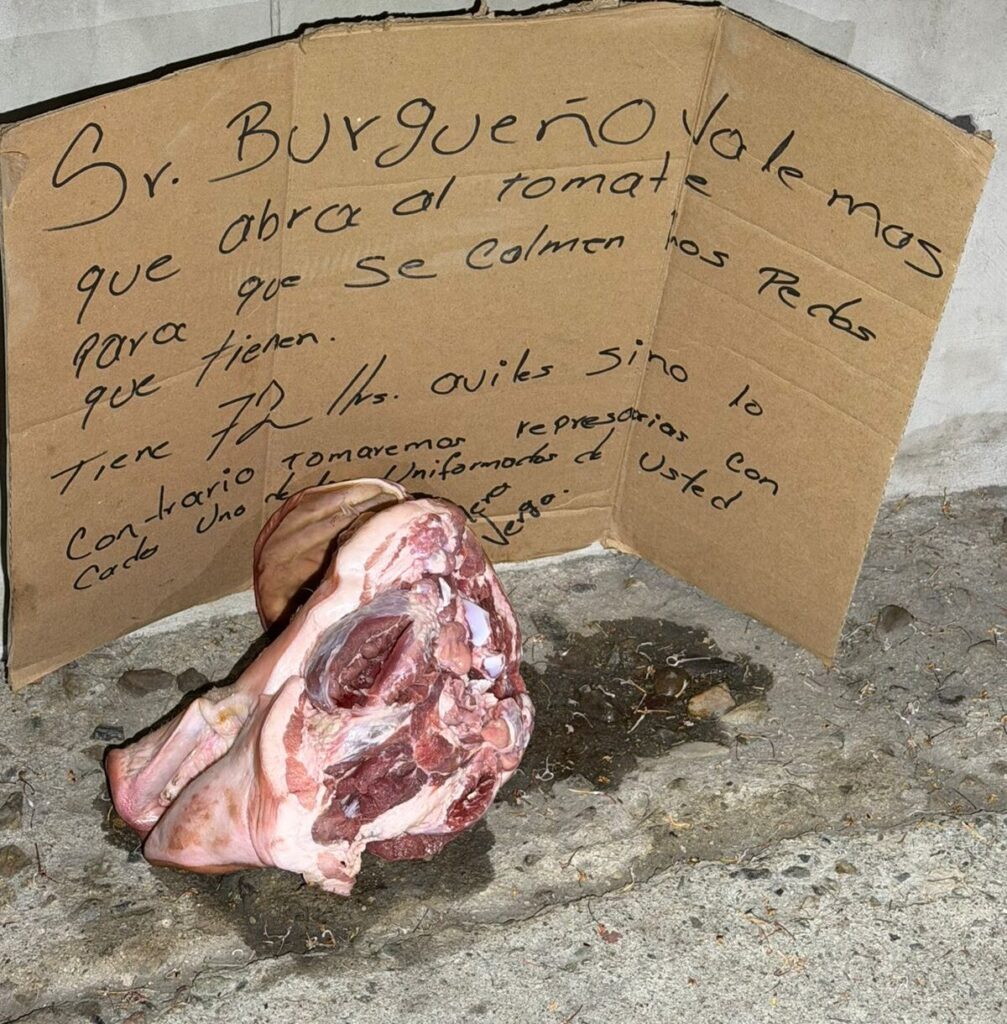 Sr. Burgueño, Vale mas
que abra al tomate
para que se colmen los Pedos
que tienen.
Tiene 72 Hrs. aviles sino lo
Contrario tomaremos represarias con
Cada Uno de Uniformados de Usted
Verga.